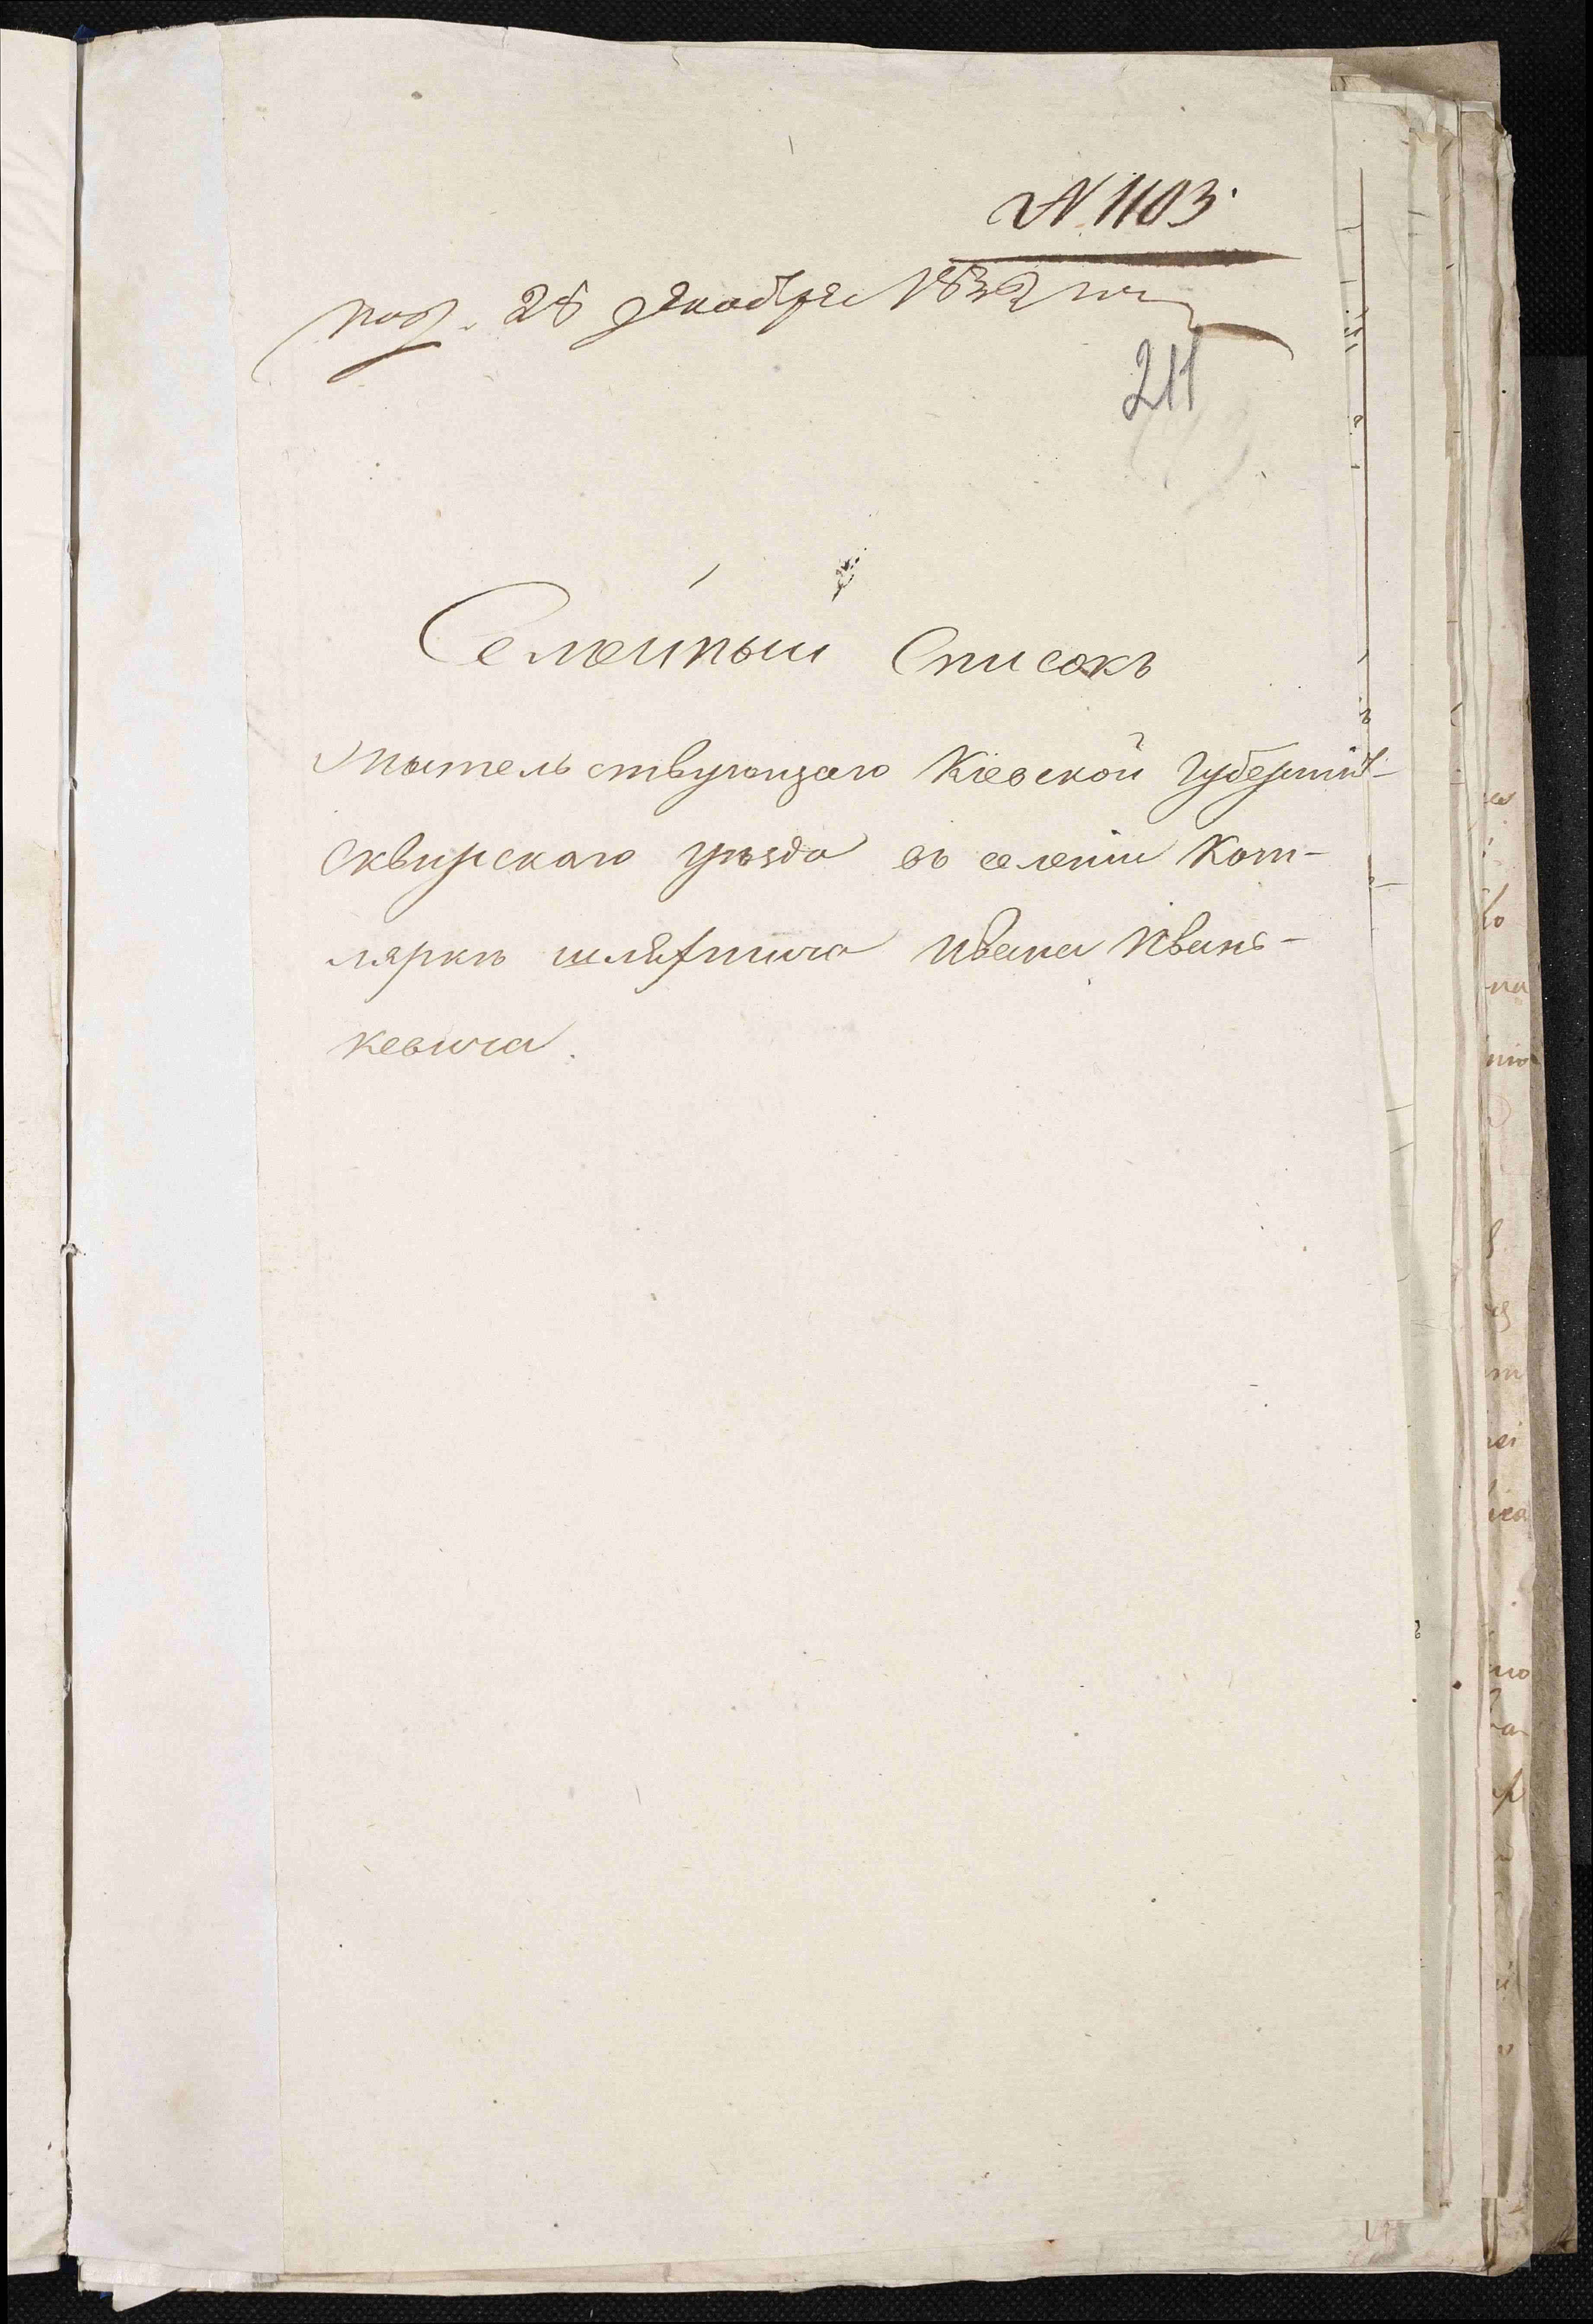 N 1103.
под. 28 декабря 1832 го
211
Семейный Списокъ
Жытельствующаго Кіевской Губерніи
Сквирскаго уѣзда въ селеніи Кот-
ляркѣ шляхтича Ивана Ивань-
кевича.